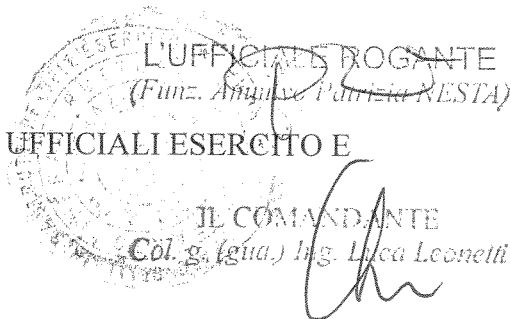 L'UFFICIALE ROGANTE
(Funz. Amm.vo Patrizia NESTA)
UFFICIALI ESERCITO E
IL COMANDANTE
Col. g. (gua.) Ing. Luca Leonetti